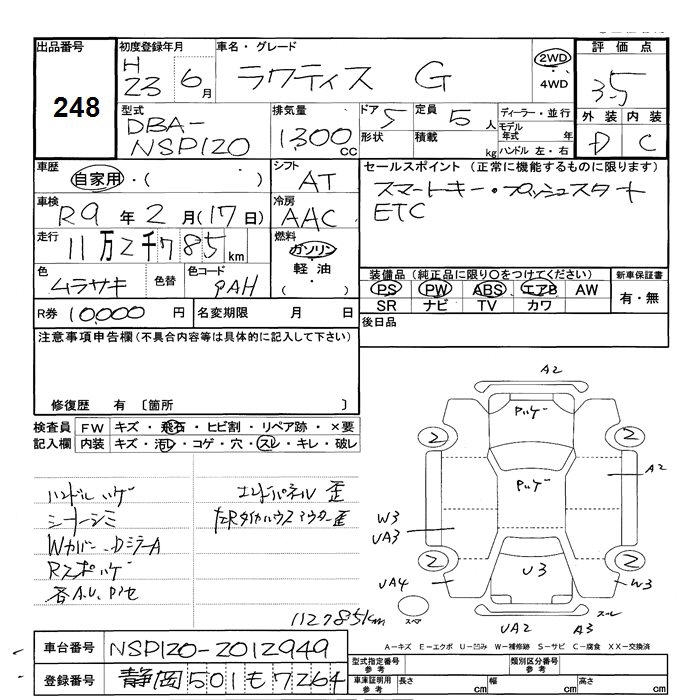 出品番号
248
初度登録年月
H 23年 6月
車名・グレード
ラクティス G
2WD
4WD
評価点
3.5
外装 内装
D C
型式
DBA-
NSP120
排気量
1300 cc
ドア 5
形状
定員 5 人
積載 kg
ディーラー・並行
モデル年式 年
ハンドル 左・右
車歴
自家用・( )
シフト
AT
セールスポイント (正常に機能するものに限ります)
スマートキー・プッシュスタート
ETC
車検
R9 年 2 月 (17日)
冷房
AAC
走行
11万2千785 km
燃料
ガソリン
軽油
( )
色
ムラサキ
色替
色コード
9AH
装備品 (純正品に限り○をつけてください)
PS PW ABS エアB AW
SR ナビ TV カワ
新車保証書
有・無
R券 10,000 円
名変期限 月 日
後日品
注意事項申告欄 (不具合内容等は具体的に記入して下さい)
修復歴 有 〔箇所 〕
検査員 FW キズ・飛石・ヒビ割・リペア跡・×要
記入欄 内装 キズ・汚レ・コゲ・穴・スレ・キレ・破レ
ハンドルハゲ
シートシミ
Wカバー、DミラーA
Rスポハゲ
各A.U.
エンドパネル歪
左Rタイヤハウスアウター歪
112785km
A2
ハゲ
2
2
A2
ハゲ
W3
UA3
2
2
U3
UA4
W3
スレ
UA2
A3
A-キズ E-エクボ U-凹み W-補修跡 S-サビ C-腐食 XX-交換済
車台番号 NSP120-2012949
登録番号 静岡 501 も 7264
型式指定番号 参考
類別区分番号 参考
車庫証明用 参考
長さ cm
幅 cm
高さ cm